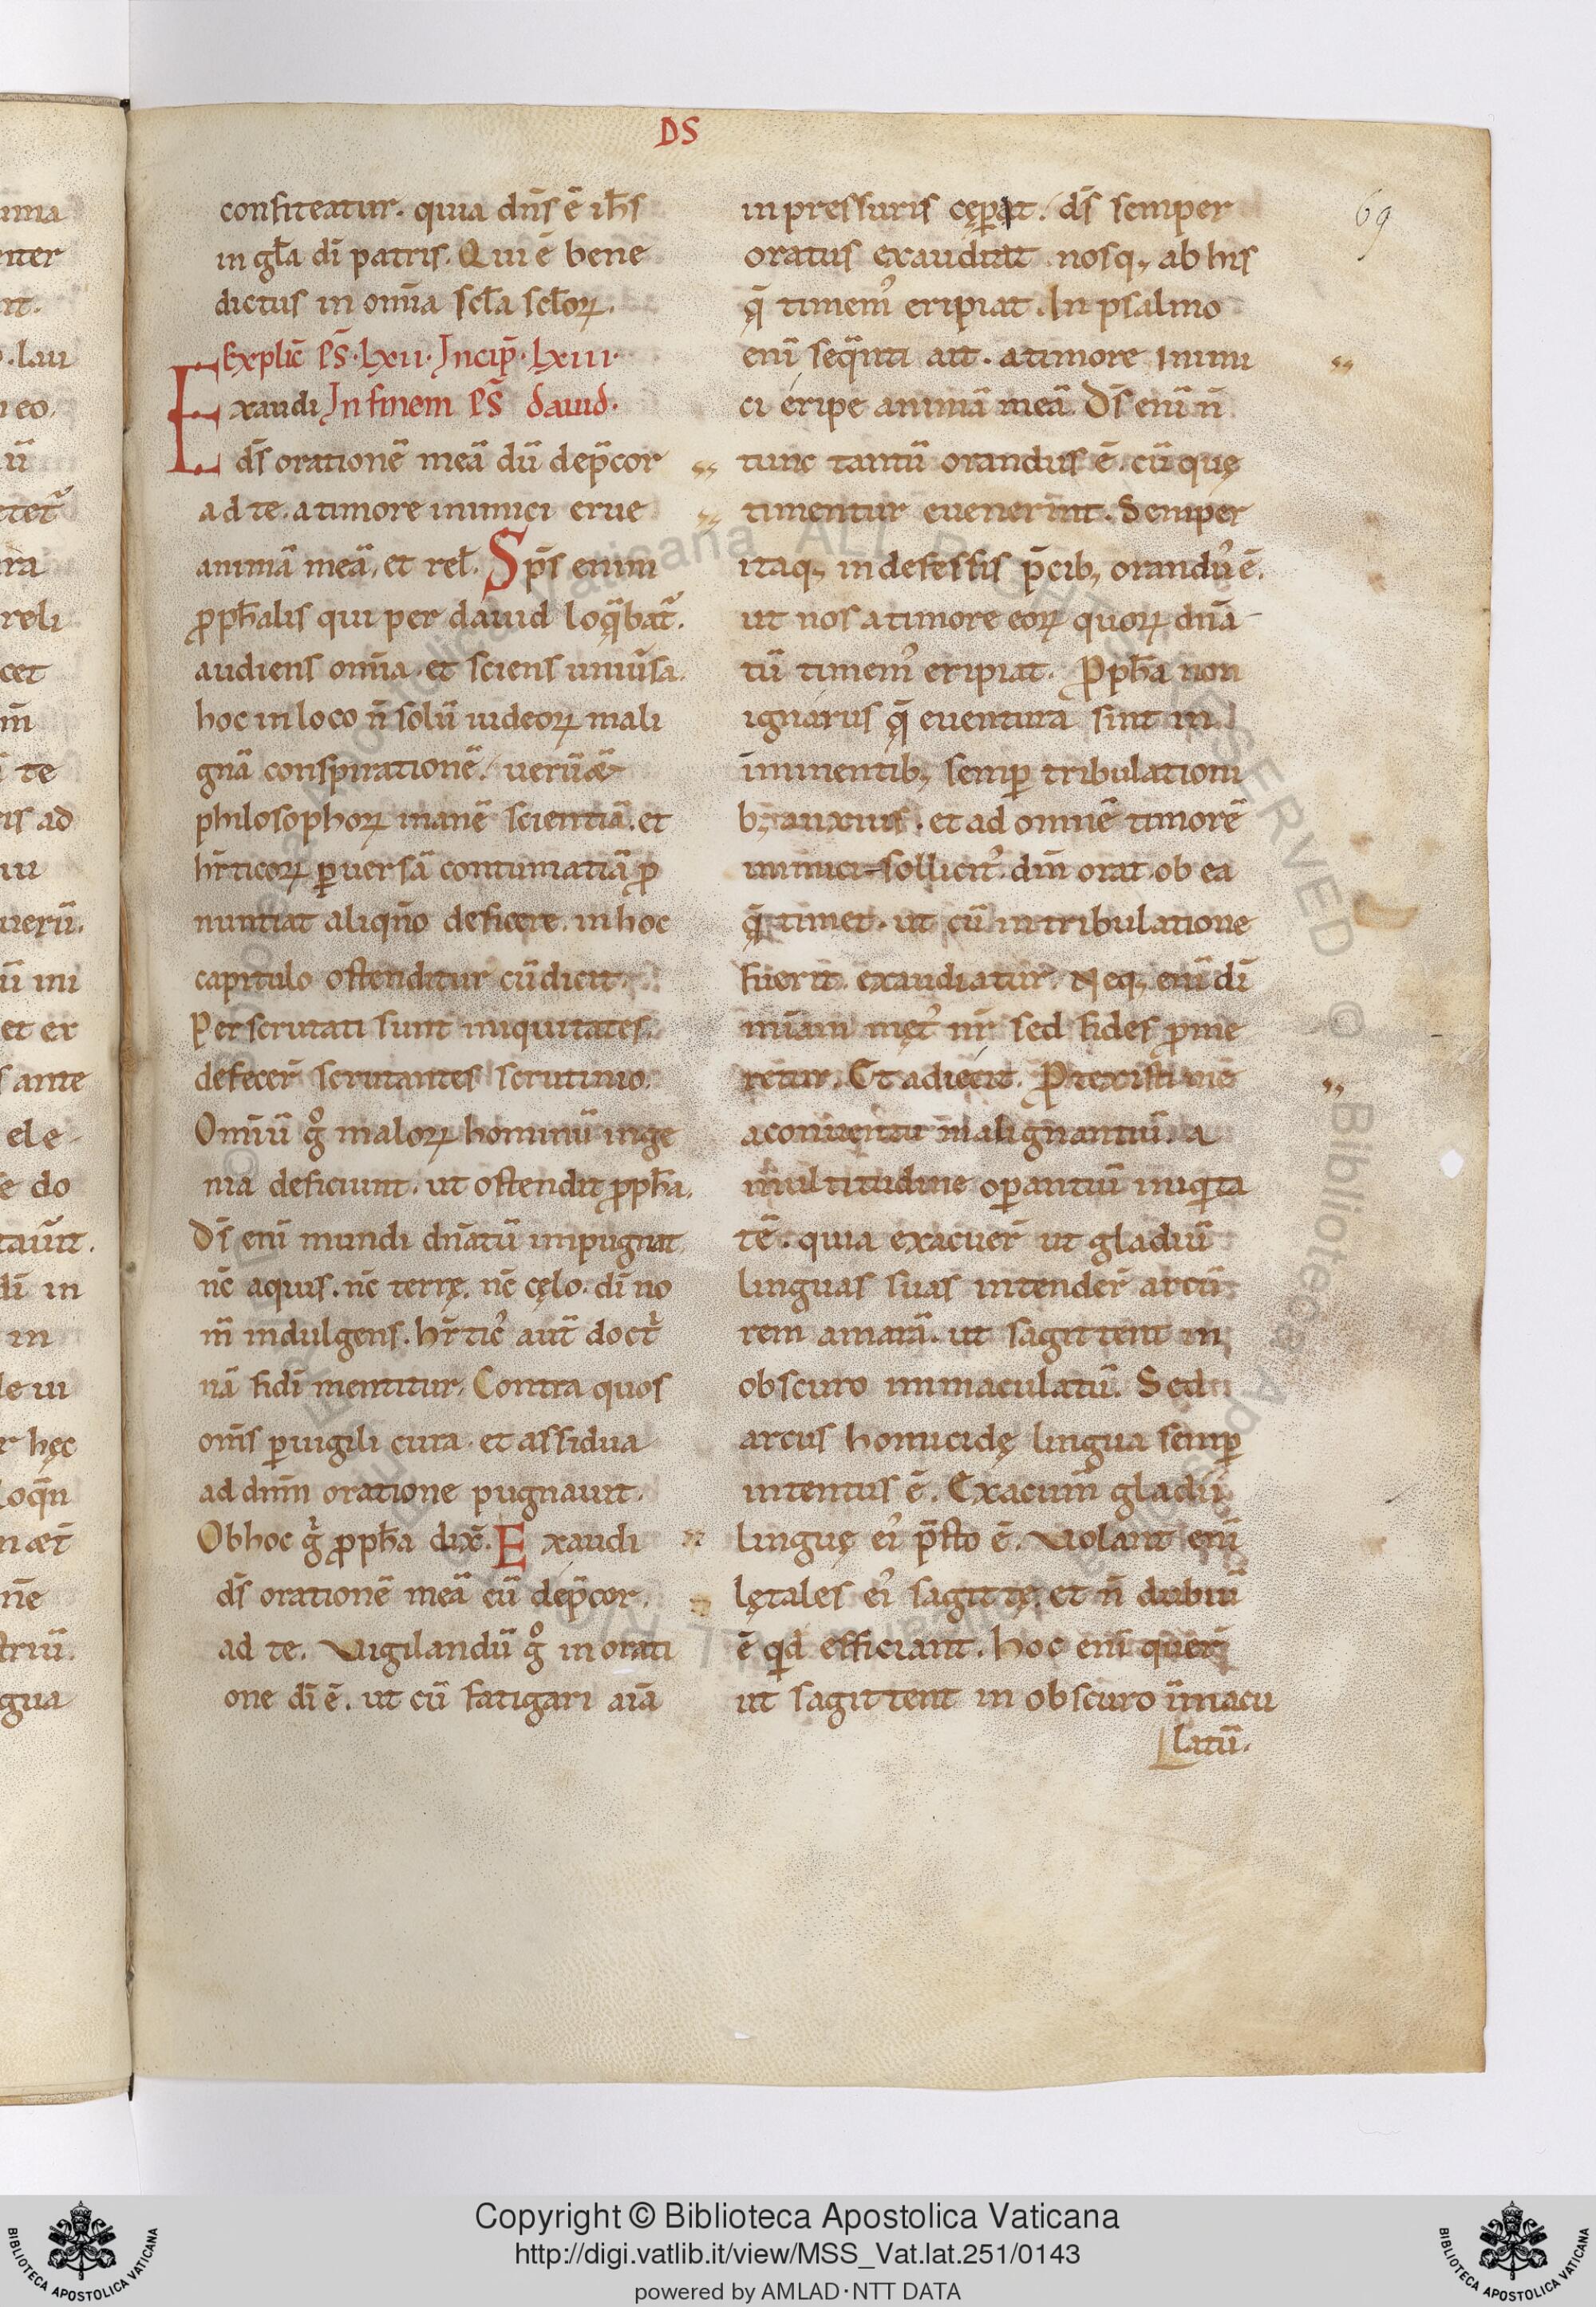 DS
69
confiteatur. quia dn̄s ē ih̄s
in gl̄a dī patris. Qui ē bene
dictus in om̄a scl̄a scl̄oꝝ.
Explic̄ PS̄. lxii. Incip̄. lxiii.
Exaudi In finem PS̄ dauid.
ds̄ orationē meā dū dep̄cor
ad te. a timore inimici erue
animā meā, et rel̄. Sp̄s enim
ꝓph̄alis qui per dauid loq̄bat᷑.
audiens om̄a. et sciens uniūsa.
hoc in loco n̄ solū iudeoꝝ mali
gnā conspirationē. uerū &
philosophoꝝ inanē scientiā. et
hr̄ticoꝝ ꝑuersā contumatiā ꝓ
nuntiat aliqn̄o deficere. in hoc
capitulo ostenditur cū dicit.
Perscrutati sunt iniquitates.
defecer̄ scrutantes scrutinio.
Om̄iū gͦ maloꝝ hominū inge
nia deficiunt. ut ostendit ꝓph̄a.
Ds̄ enī mundi dn̄atū impugnat
nc̄ aquis. nc̄ terrę. nc̄ cęlo. dī no
m̄ indulgens. hr̄tic᷒ aut̄ doctͥ
nā fidī mentitur. Contra quos
om̄s ꝑuigili cura et assidua
ad dnm̄ oratione pugnauit.
Ob hoc gͥ ꝓph̄a dix̄. Exaudi
ds̄ orationē meā cū dep̄cor.
ad te. Vigilandū gͦ in orati
one dī ē. ut cū fatigari aīa
in pressuris cęꝑat. ds̄ semper
oratus exaudiat nosq; ab his
q̄ timem᷒ eripiat. In psalmo
enī seq̄nti ait. a timore inimi
ci eripe animā meā. Ds̄ enī n̄
tunc tantū orandus ē. cū quę
timentur euenerint. Semper
itaq; indefessis p̄cib; orand᷒ ē.
ut nos a timore eoꝝ quoꝝ dn̄a
tū timem᷒ eripiat. Ꝓph̄a non
ignarus q̄ euentura sint in
īminentib; semꝑ tribulationi
b; anxius. et ad omnē timorē
inimici sollicit᷒ dīn orat. ob ea
q̄ timet. ut cū in tribulatione
fuerit. exaudiatur. Neq; enī dī
mīam męt᷒ nr̄ sed fides ꝓme
retur. Et adiecit. Ꝓtexisti me
a conuentu malignantiū. a
multitudine oꝑantiū iniqͥta
tē. quia exacuer̄ ut gladiū
linguas suas intender̄ arcū
rem amarā. ut sagittent in
obscuro immaculatū. Sed
arcus homicidę lingua semꝑ
intentus ē. Exacum̄ gladii
linguę ei᷒ p̄sto ē. Violant enī
lętales ei᷒ sagittę. et n̄ dubiū
ē qͥd efficiant. hoc enī
ut sagittent in obscuro īmacu
latū.
Copyright © Biblioteca Apostolica Vaticana
http://digi.vatlib.it/view/MSS_Vat.lat.251/0143
powered by AMLAD·NTT DATA